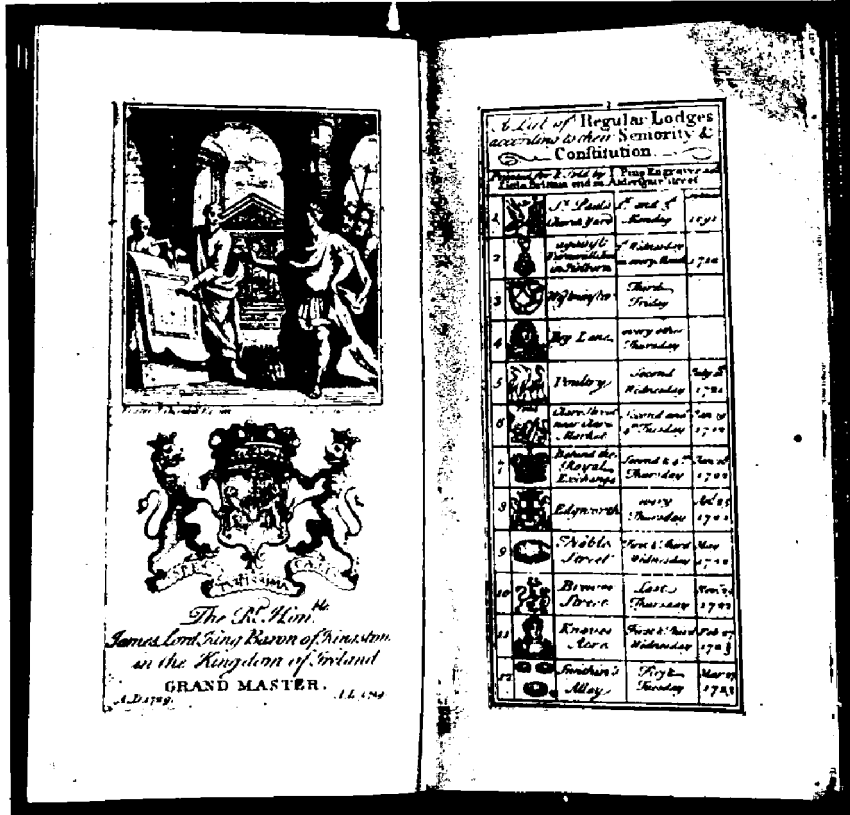 SPES TUTISSIMA CŒLIS
The Rt. Honble.
James Lord King Baron of Kingston
in the Kingdom of Ireland
GRAND MASTER.
A.D. 1729.
A List of Regular Lodges
according to their Seniority &
Constitution
Printed for & Sold by I. Pine Engraver
Little Britain end in Aldersgate Street
1 St. Paul's Church Yard Monday 1691
2 in Holborn Wednesday in every Month 1712
3 Westminster Third Friday
4 every other Thursday
5 Poultry Second Wednesday July 1721
6 near Clare Market Second and 4th Tuesday Jan 19 1722
7 Behind the Royal Exchange Second & 4th Thursday Jan 28 1722
8 Edgworth every Thursday 25 1722
9 Noble Street First & third Wednesday May 1722
10 Street Last Thursday Nov. 25 1722
11 Knaves Acre First & third Wednesday Feb 27 1723
12 Swithin's Alley First Tuesday Mar 27 1723